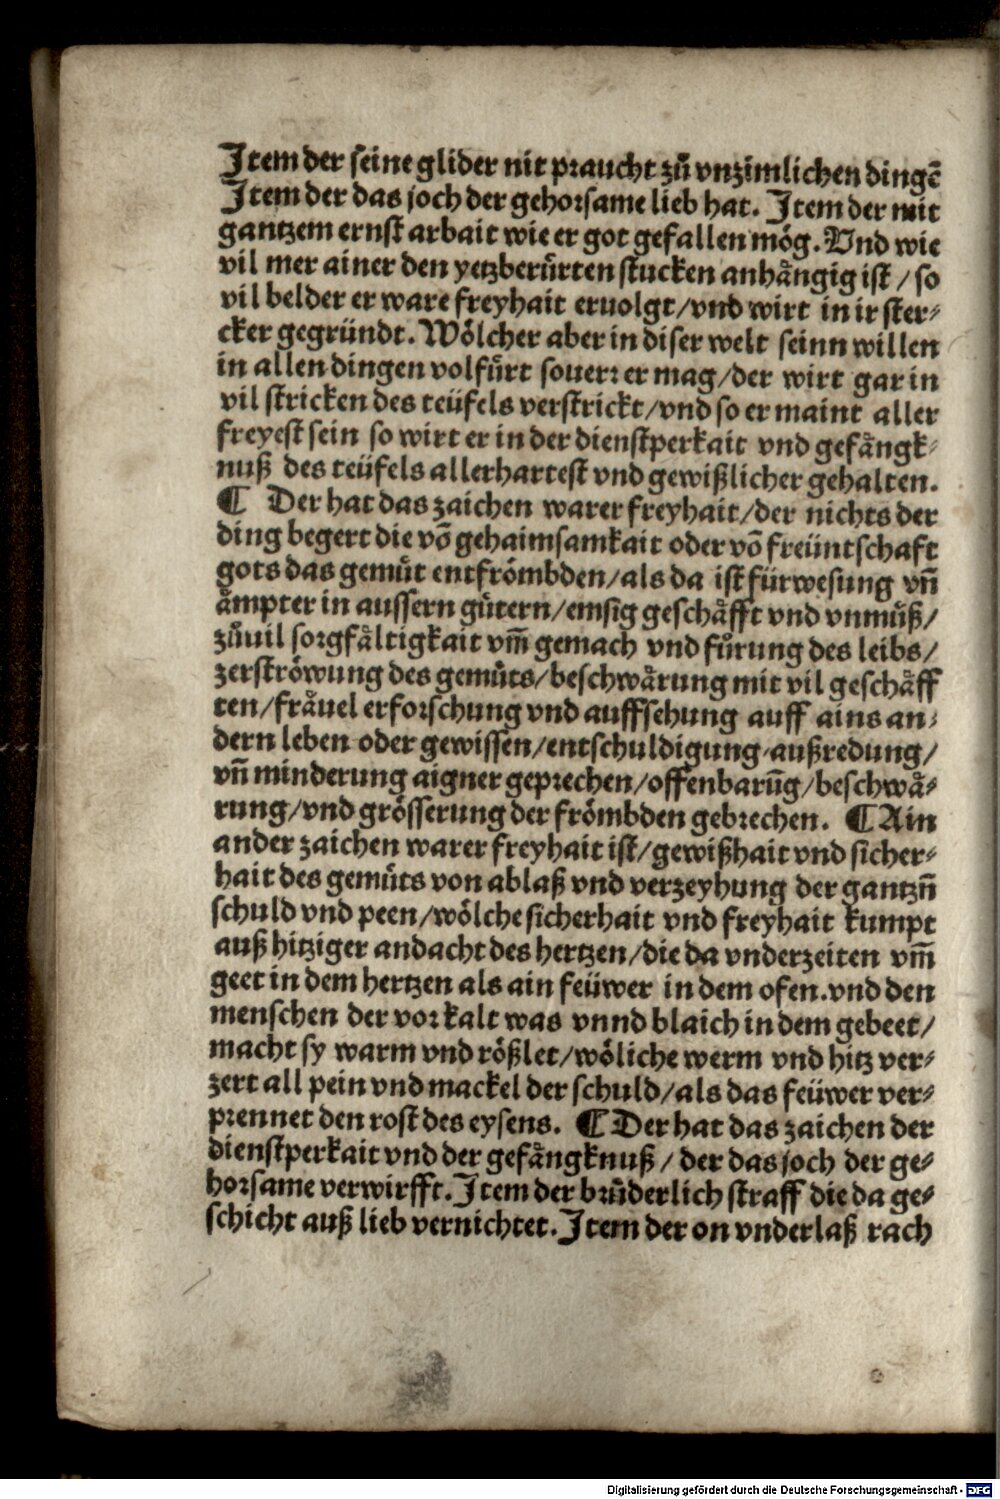 Item der seine glider nit praucht zů vnzimlichen dingē
Item der das joch der gehorsame lieb hat. Item der mit
gantzem ernst arbait wie er got gefallen mög. Vnd wie
vil mer ainer den yetzberürten stucken anhängig ist / so
vil belder er ware freyhait eruolgt / vnd wirt in ir ster⸗
cker gegründt. Wölcher aber in diser welt seinn willen
in allen dingen volfürt souerr er mag / der wirt gar in
vil stricken des teüfels verstrickt / vnd so er maint aller
freyest sein so wirt er in der dienstperkait vnd gefängk⸗
nuß des teüfels allerhartest vnd gewißlicher gehalten.
¶ Der hat das zaichen warer freyhait / der nichts der
ding begert die vō gehaimsamkait oder vō freüntschaft
gots das gemüt entfrömbden / als da ist fürwesung vñ
ämpter in aussern gütern / emsig geschäfft vnd vnmůß /
zůuil sorgfältigkait vm̄ gemach vnd fůrung des leibs /
zerströwung des gemüts / beschwärung mit vil geschäff
ten / fräuel erforschung vnd auffsehung auff ains an⸗
dern leben oder gewissen / entschuldigung / außredung /
vñ minderung aigner geprechen / offenbarūg / beschwä⸗
rung / vnd grösserung der frömbden gebrechen. ¶ Ain
ander zaichen warer freyhait ist / gewißhait vnd sicher⸗
hait des gemüts von ablaß vnd verzeyhung der gantzñ
schuld vnd peen / wölche sicherhait vnd freyhait kumpt
auß hitziger andacht des hertzen / die da vnderzeiten vm̄
geet in dem hertzen als ain feüwer in dem ofen. vnd den
menschen der vor kalt was vnnd blaich in dem gebeet /
macht sy warm vnd rößlet / wöliche werm vnd hitz ver⸗
zert all pein vnd mackel der schuld / als das feüwer ver⸗
prennet den rost des eysens. ¶ Der hat das zaichen der
dienstperkait vnd der gefängknuß / der das joch der ge⸗
horsame verwirfft. Item der brůderlich straff die da ge⸗
schicht auß lieb vernichtet. Item der on vnderlaß rach
Digitalisierung gefördert durch die Deutsche Forschungsgemeinschaft - DFG